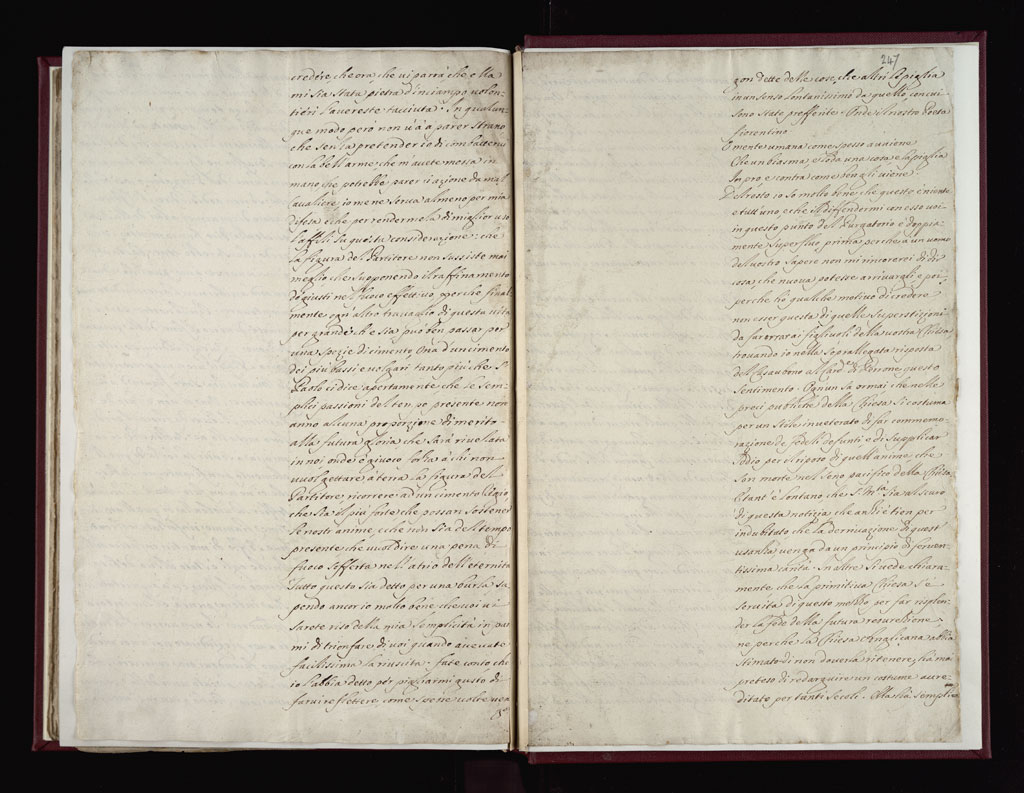 credere che ora, che vi parrà che ella
mi sia stata pietra d'inciampo volen-
tieri l'avereste taciuta. In qualun-
que modo però non v'à a parer strano
che senza pretender io di combattervi
con la bell'arme che m'avete messa in
mano, che potrebbe parer azione da mal
Cavaliere, io me ne serva almeno per mia
difesa, e che per rendermela di miglior uso
l'affili su questa considerazione: che
la figura del Partitore non sussiste mai
meglio che supponendo il raffinamento
di giusti nel fuoco effettivo, perche final-
mente ogn'altro travaglio di questa vita
per grande ch'e sia può ben passar per
una spezie di cimento, ma d'un cimento
dei più bassi e volgari, tanto più che S.
Paolo ci dice apertamente che le sem-
plici passioni del tempo presente non
anno alcuna proporzione di merito
alla futura gloria che sarà rivelata
in noi onde è giuoco forza à chi non
vuol gettare à terra la figura del
Partitore, ricorrere ad un cimento
che sia il più forte che possan sostener
le nostre anime, e che non sia del tempo
presente ch'è vuol dire una pena di
fuoco sofferta nell'atrio dell'eternità
Tutto questo sia detto per una burla sa-
pendo ancor io molto bene, che voi vi
sarete riso della mia semplicità in
mi di trionfare di voi quando avevate
facilissima la riuscita. Fate conto che
io l'abbia detto per pigliarmi gusto di
farvi riflettere, come spesse volte
247
gon dette delle cose, che altri le piglia
in un senso lontanissimo da quello, con cui
sono state profferite. Onde il nostro Poeta
fiorentino
O mente umana come spesso avviene
Che un biasma, e loda una cosa e la piglia
In pro e contra come ben gli viene.
Del resto io so molto bene che questo è niente
e tutt'uno, e che il diffendermi con esso voi
in questo punto del Purgatorio è doppia-
mente superfluo prima perche à un uomo
del vostro sapere non mi rincorerei di dir
cosa che nuova potesse arrivargli e poi
perche hò qualche motivo di credere
non esser questa di quelle superstizioni
da far errar i figlivoli della vostra Chiesa
trovando io nella soprallegata risposta
del Casaubono al Card. di Perrone questo
sentimento. Ognun sà ormai che nelle
preci publiche della Chiesa si costuma
per un stile inveterato di far commemo-
razione de fedeli defunti e di supplicar
Iddio per il riposo di quell'anime, che
son morte nel seno pacifico della Chiesa
E tant'è lontano, che S. Mtà sia all'oscuro
di questa notizia che anzi è tien per
indubitato che la derivazione di quest'
usanza venga da un principio di ferven-
tissima carità. In oltre si vede chiara-
mente, che la primitiva Chiesa s'è
servita di questo mezzo per far risplen-
der la fede della futura resurezione,
ne perche la Chiesa Anglicana abbia
stimato di non doverla ritenere, hà mai
preteso di redarguire un costume acre-
ditato per tanti secoli.